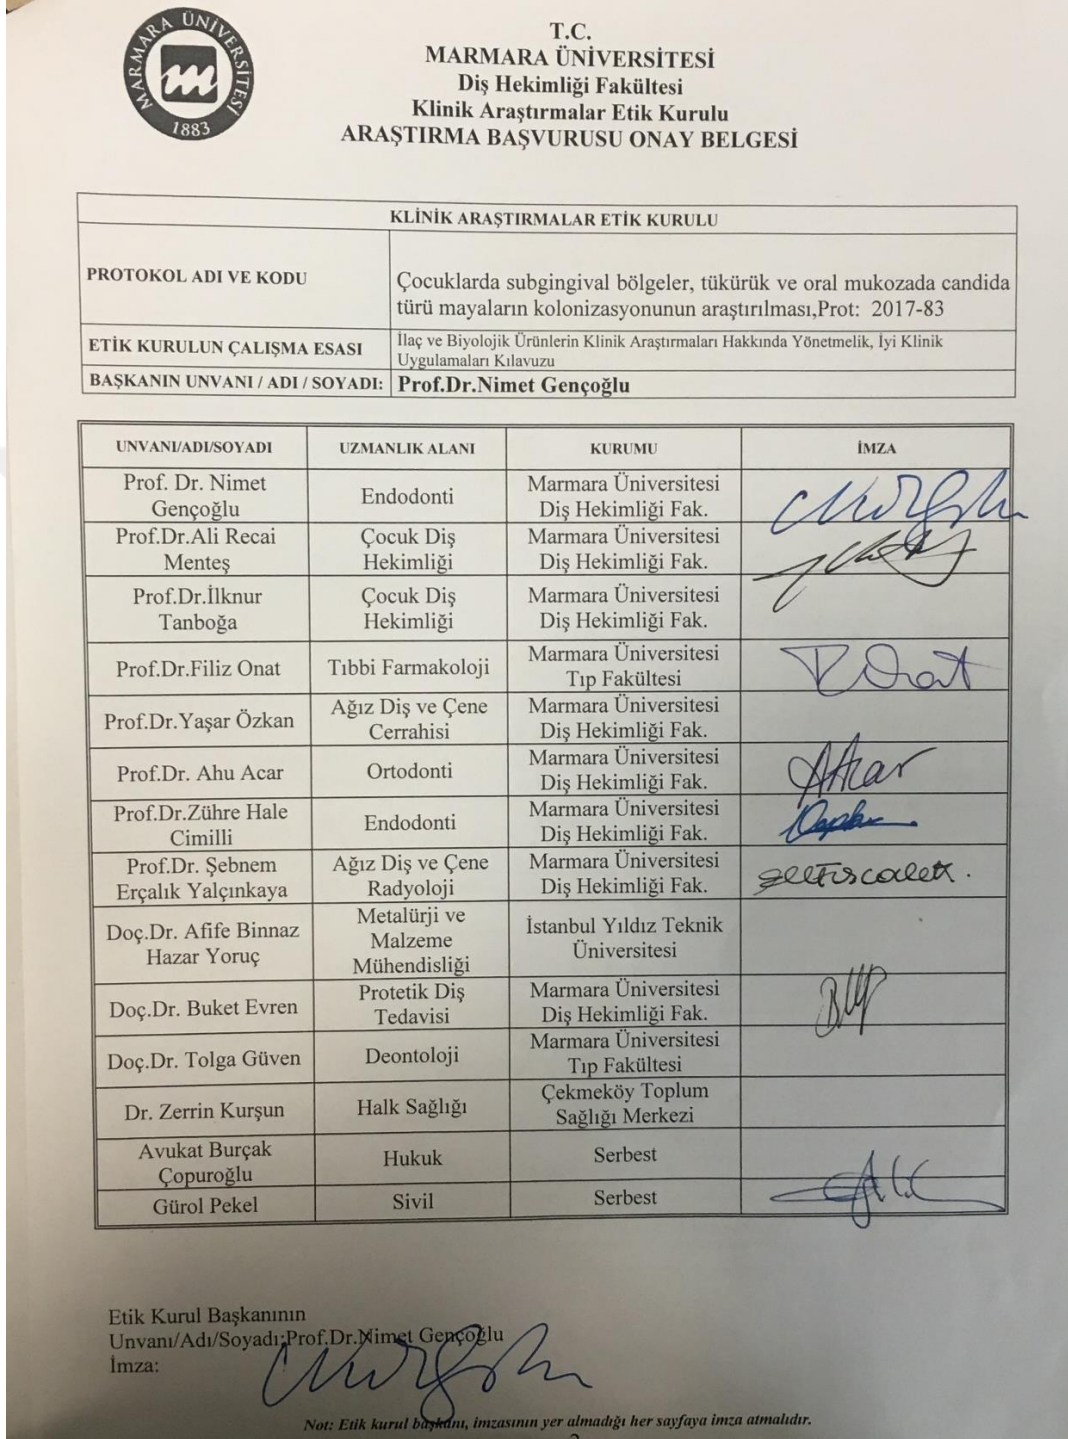 MARMARA ÜNİVERSİTESİ
1883
T.C.
MARMARA ÜNİVERSİTESİ
Diş Hekimliği Fakültesi
Klinik Araştırmalar Etik Kurulu
ARAŞTIRMA BAŞVURUSU ONAY BELGESİ
KLİNİK ARAŞTIRMALAR ETİK KURULU
PROTOKOL ADI VE KODU
Çocuklarda subgingival bölgeler, tükürük ve oral mukozada candida
türü mayaların kolonizasyonunun araştırılması,Prot: 2017-83
ETİK KURULUN ÇALIŞMA ESASI
İlaç ve Biyolojik Ürünlerin Klinik Araştırmaları Hakkında Yönetmelik, İyi Klinik
Uygulamaları Kılavuzu
BAŞKANIN UNVANI / ADI / SOYADI: Prof.Dr.Nimet Gençoğlu
UNVANI/ADI/SOYADI UZMANLIK ALANI KURUMU İMZA
Prof. Dr. Nimet
Gençoğlu
Endodonti
Marmara Üniversitesi
Diş Hekimliği Fak.
Prof.Dr.Ali Recai
Menteş
Çocuk Diş
Hekimliği
Marmara Üniversitesi
Diş Hekimliği Fak.
Prof.Dr.İlknur
Tanboğa
Çocuk Diş
Hekimliği
Marmara Üniversitesi
Diş Hekimliği Fak.
Prof.Dr.Filiz Onat
Tıbbi Farmakoloji
Marmara Üniversitesi
Tıp Fakültesi
Prof.Dr.Yaşar Özkan
Ağız Diş ve Çene
Cerrahisi
Marmara Üniversitesi
Diş Hekimliği Fak.
Prof.Dr. Ahu Acar
Ortodonti
Marmara Üniversitesi
Diş Hekimliği Fak.
Prof.Dr.Zühre Hale
Cimilli
Endodonti
Marmara Üniversitesi
Diş Hekimliği Fak.
Prof.Dr. Şebnem
Erçalık Yalçınkaya
Ağız Diş ve Çene
Radyoloji
Marmara Üniversitesi
Diş Hekimliği Fak.
Doç.Dr. Afife Binnaz
Hazar Yoruç
Metalürji ve
Malzeme
Mühendisliği
İstanbul Yıldız Teknik
Üniversitesi
Doç.Dr. Buket Evren
Protetik Diş
Tedavisi
Marmara Üniversitesi
Diş Hekimliği Fak.
Doç.Dr. Tolga Güven
Deontoloji
Marmara Üniversitesi
Tıp Fakültesi
Dr. Zerrin Kurşun
Halk Sağlığı
Çekmeköy Toplum
Sağlığı Merkezi
Avukat Burçak
Çopuroğlu
Hukuk
Serbest
Gürol Pekel
Sivil
Serbest
Etik Kurul Başkanının
Unvanı/Adı/Soyadı:Prof.Dr.Nimet Gençoğlu
İmza:
Not: Etik kurul başkanı, imzasının yer almadığı her sayfaya imza atmalıdır.